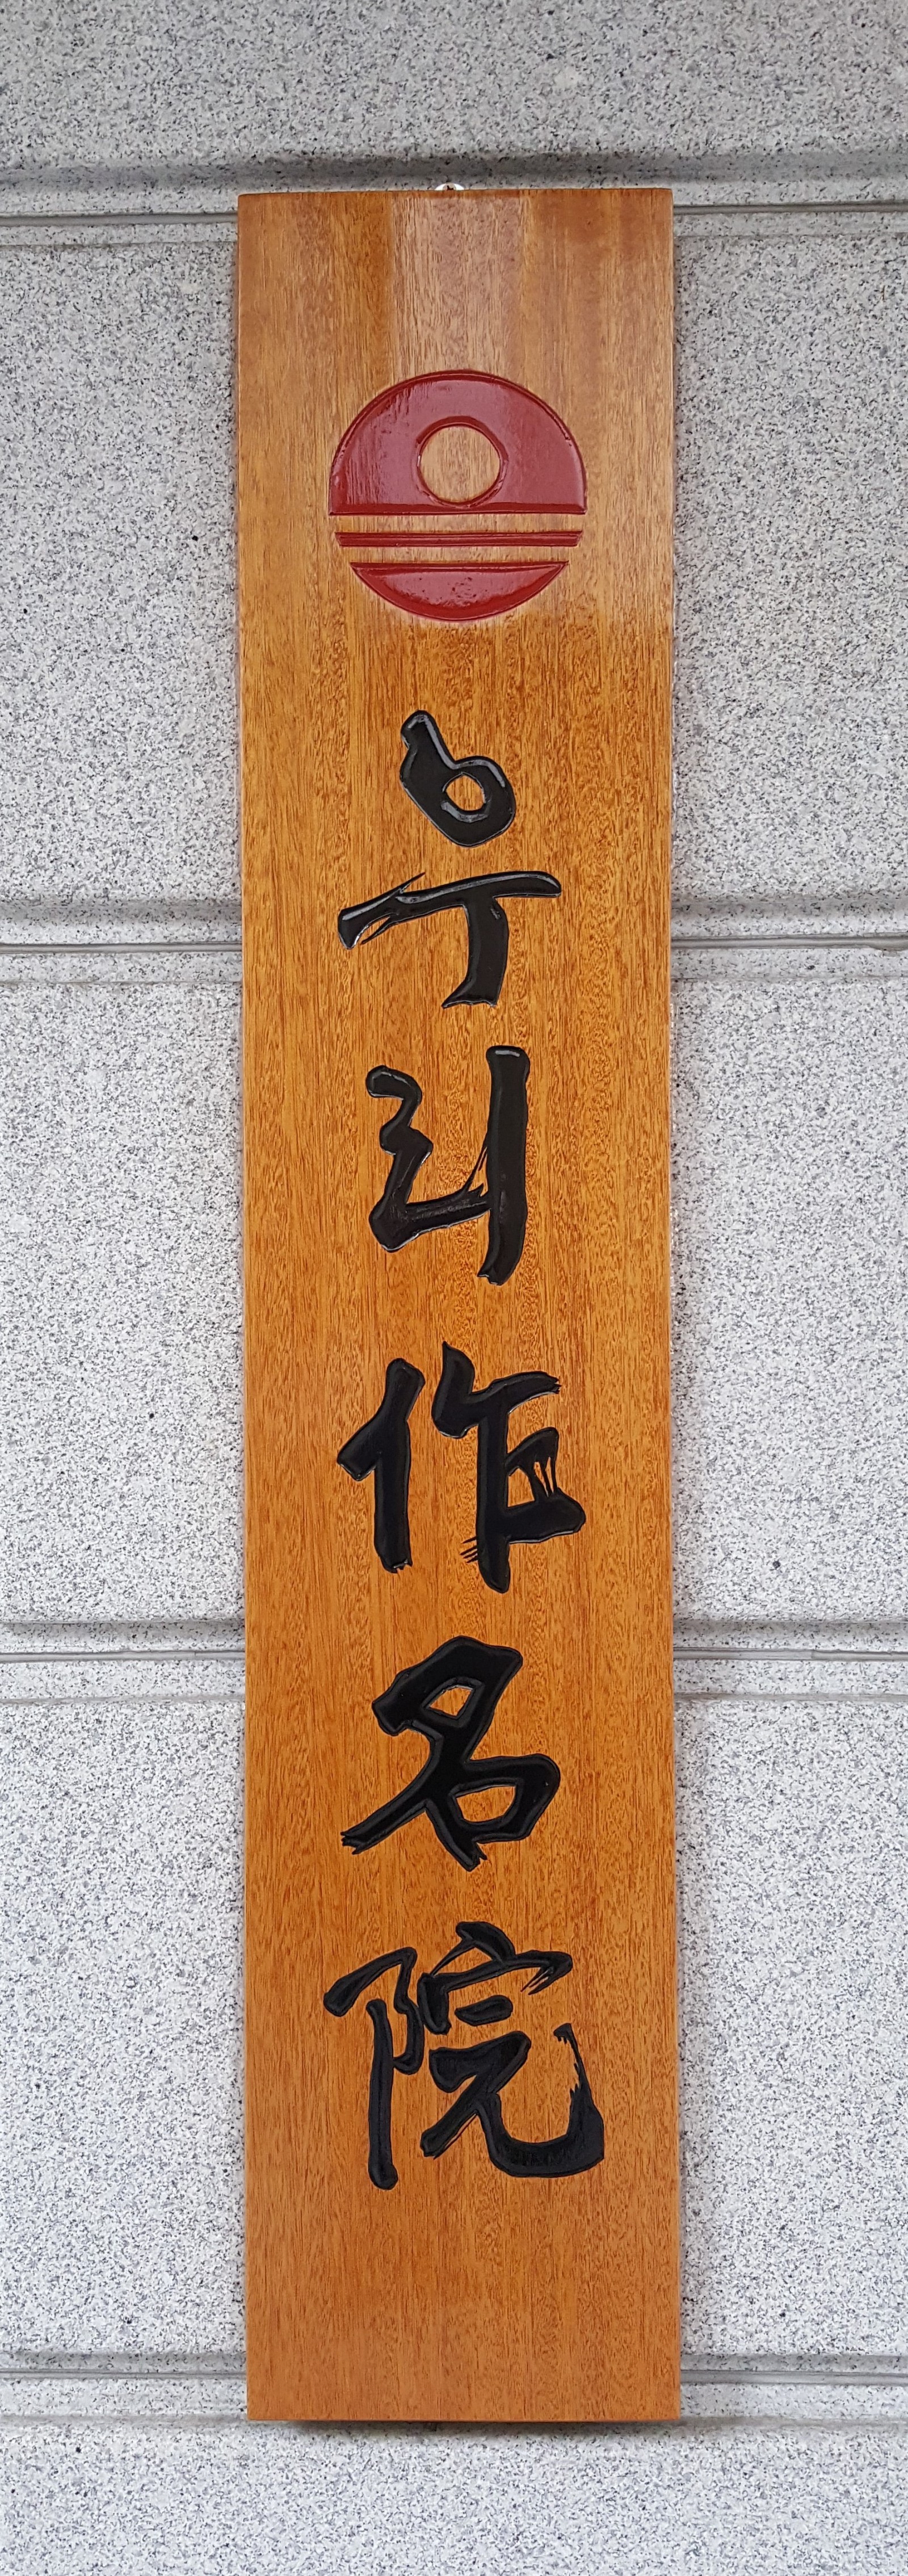 우리作名院